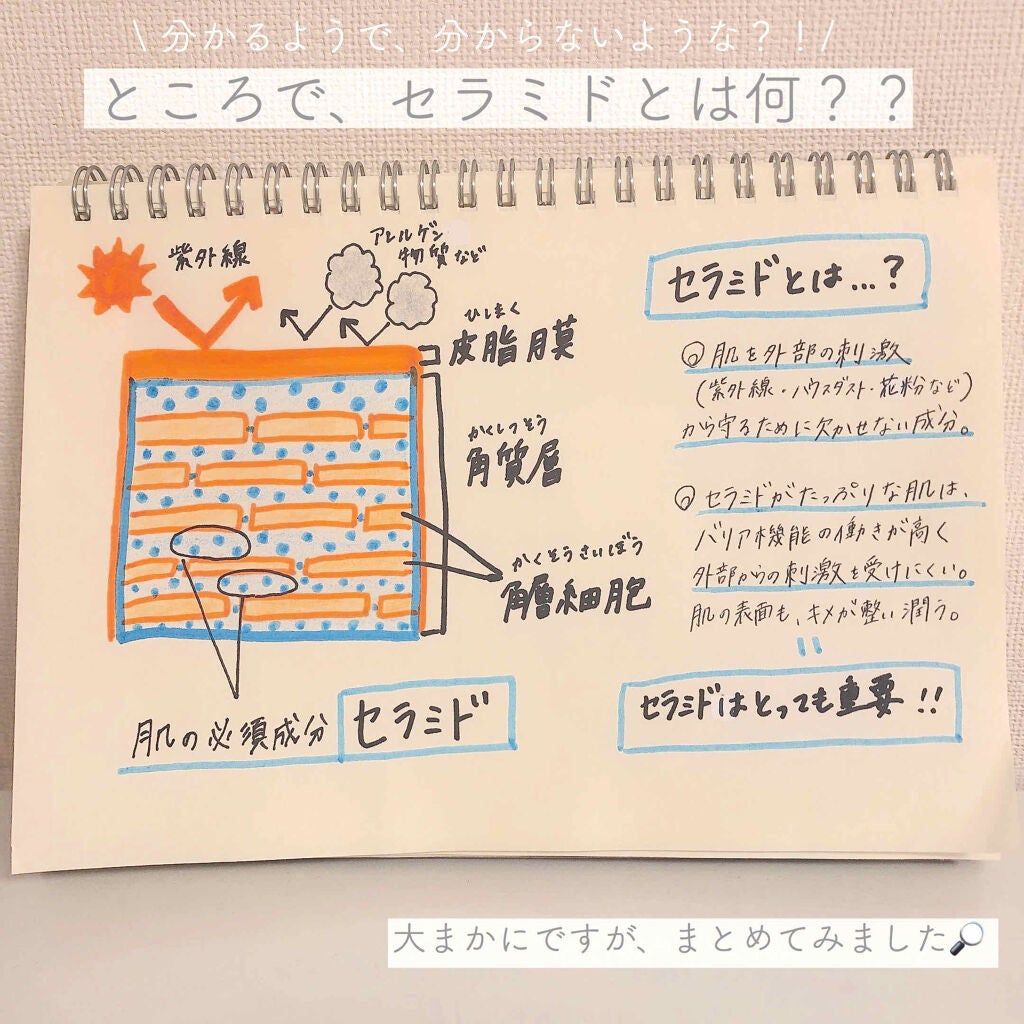 \ 分かるようで、分からないような？！/
ところで、セラミドとは何？？
紫外線
アレルゲン
物質など
ひしまく
皮脂膜
かくしつそう
角質層
かくそうさいぼう
角層細胞
肌の必須成分 セラミド
セラミドとは…？
◎ 肌を外部の刺激
(紫外線・ハウスダスト・花粉など)
から守るために欠かせない成分。
◎ セラミドがたっぷりな肌は、
バリア機能の働きが高く
外部からの刺激を受けにくい。
肌の表面も、キメが整い潤う。
セラミドはとっても重要!!
大まかにですが、まとめてみました🔎